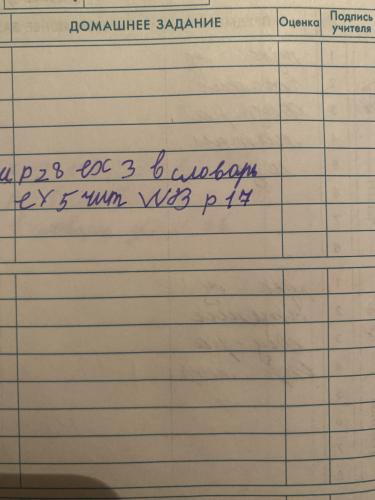 ДОМАШНЕЕ ЗАДАНИЕ Оценка Подпись учителя
p 28 ex 3 в словарь
ex 5 чит WB p 17